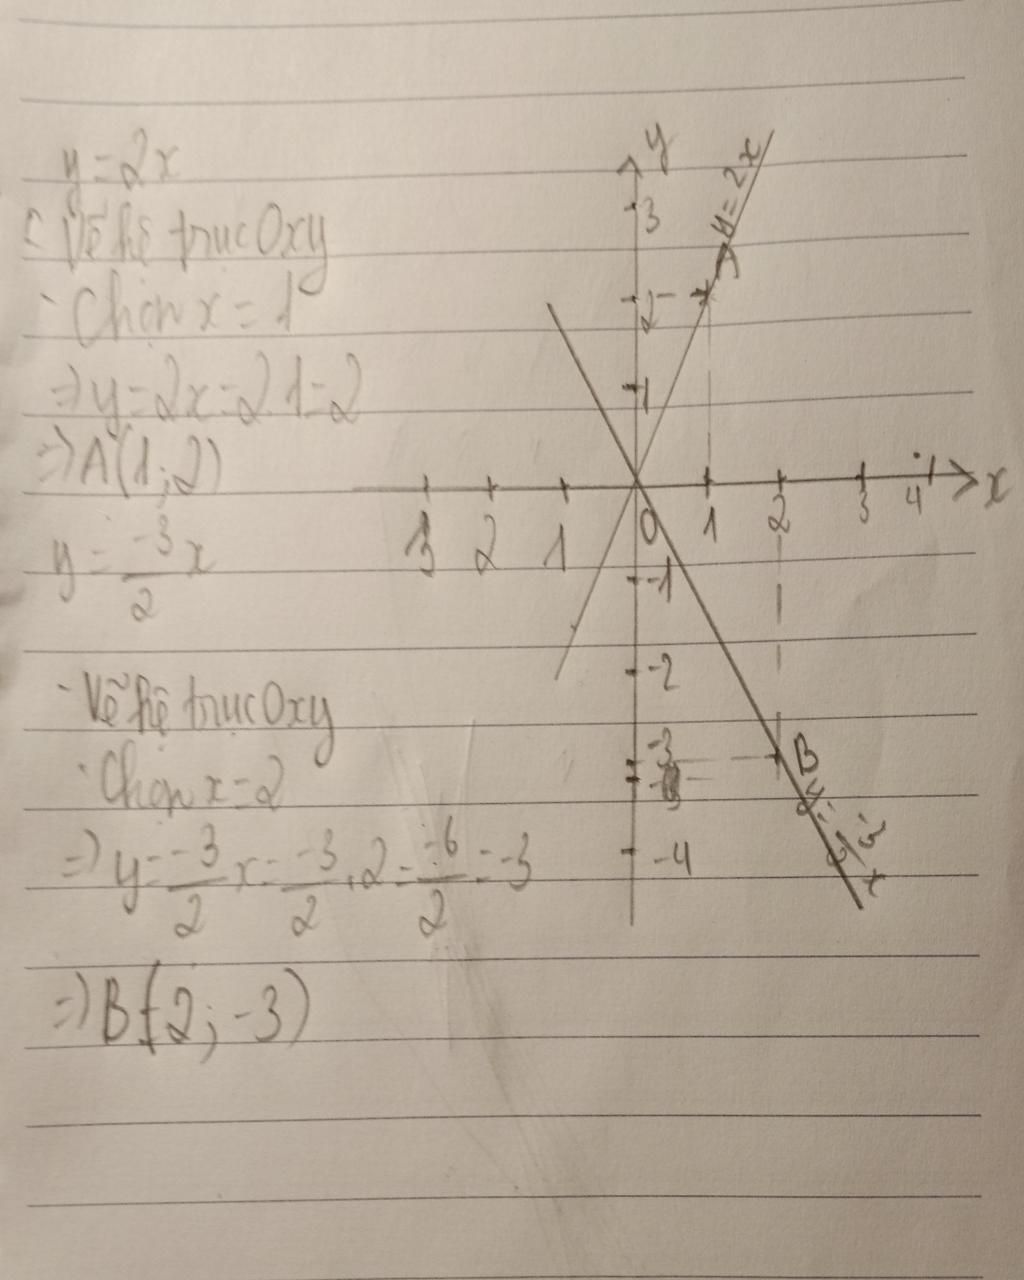 y = 2x
- Vẽ hệ trục Oxy
- Chọn x = 1
=> y = 2x = 2.1 = 2
=> A(1; 2)
y = -3/2 x
- Vẽ hệ trục Oxy
- Chọn x = 2
=> y = -3/2 x = -3/2 . 2 = -6/2 = -3
=> B(2; -3)
y
y = 2x
3
A
2
1
3 2 1 0 1 2 3 4 x
-1
-2
-3
B
y = -3/2 x
-4